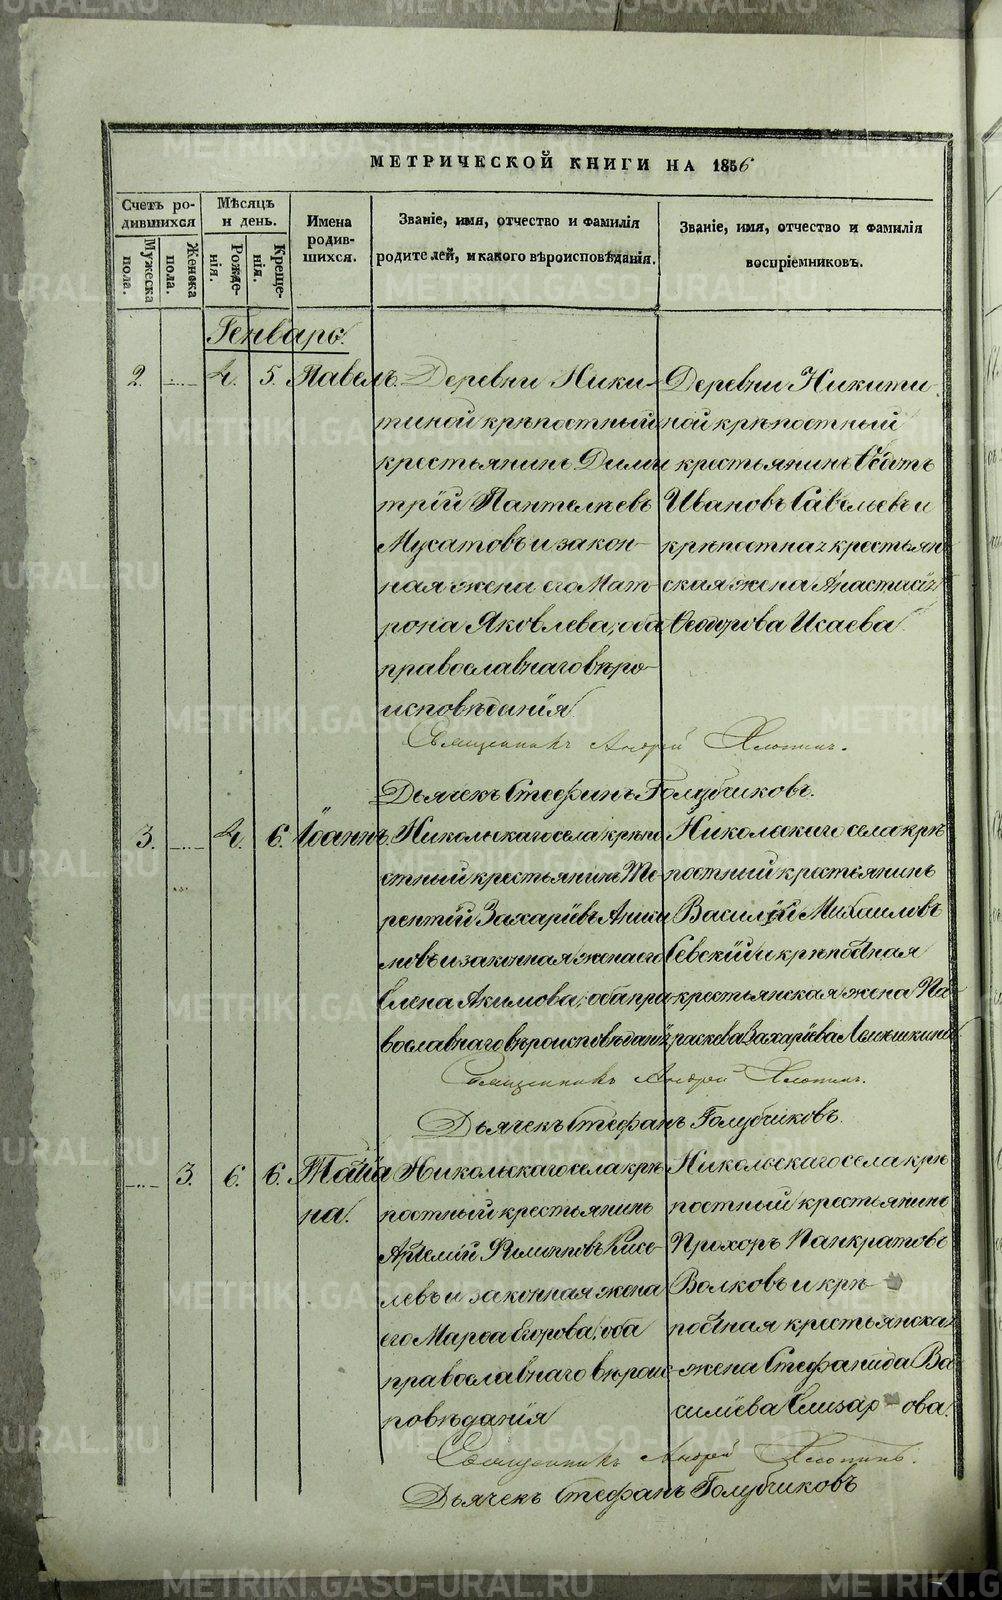 МЕТРИЧЕСКОЙ КНИГИ НА 1856
Счетъ ро-
дившихся
Мужеска
пола.
Женска
пола.
Мѣсяцъ
и день.
Рожде-
нія.
Креще-
нія.
Имена
родив-
шихся.
Званіе, имя, отчество и фамилія
родителей, и какого вѣроисповѣданія.
Званіе, имя, отчество и фамилія
воспріемниковъ.
Генварь.
2. 4. 5. Павелъ.
Деревни Ники-
тиной крѣпостный
крестьянинъ Дими
трій Пантелѣевъ
Мусатовъ и закон-
ная жена его Мат-
рона Яковлева, оба
православнаго вѣро-
исповѣданія
Деревни Никити
ной крѣпостный
крестьянинъ Ѳедотъ
Ивановъ Савельевъ и
крѣпостная крестьян
ская жена Анастасія
Ѳеодорова Исаева.
Священникъ Андрей Хлопинъ.
Дьячекъ Стефанъ Голубчиковъ.
3. 4. 6. Іоаннъ.
Никольскаго села крѣпо
стный крестьянинъ Те-
рентій Захаріевъ Аники
мовъ и законная жена его
Елена Акимова, оба пра-
вославнаго вѣроисповѣданія
Никольскаго села крѣ
постный крестьянинъ
Василій Михаиловъ
Севскій и крѣпостная
крестьянская жена Па-
раскева Захаріева
Священникъ Андрей Хлопинъ.
Дьячекъ Стефанъ Голубчиковъ.
3. 6. 6. Татіа
на.
Никольскаго села крѣ
постный крестьянинъ
Артемій Филипповъ Кисе-
левъ и законная жена
его Марѳа Егорова, оба
православнаго вѣроис-
повѣданія
Никольскаго села крѣ
постный крестьянинъ
Прохоръ Панкратовъ
Волковъ и крѣ-
постная крестьянская
жена Стефанида Ва
силіева Елизар-ова.
Священникъ Андрей Хлопинъ.
Дьячекъ Стефанъ Голубчиковъ
METRIKI.GASO-URAL.RU